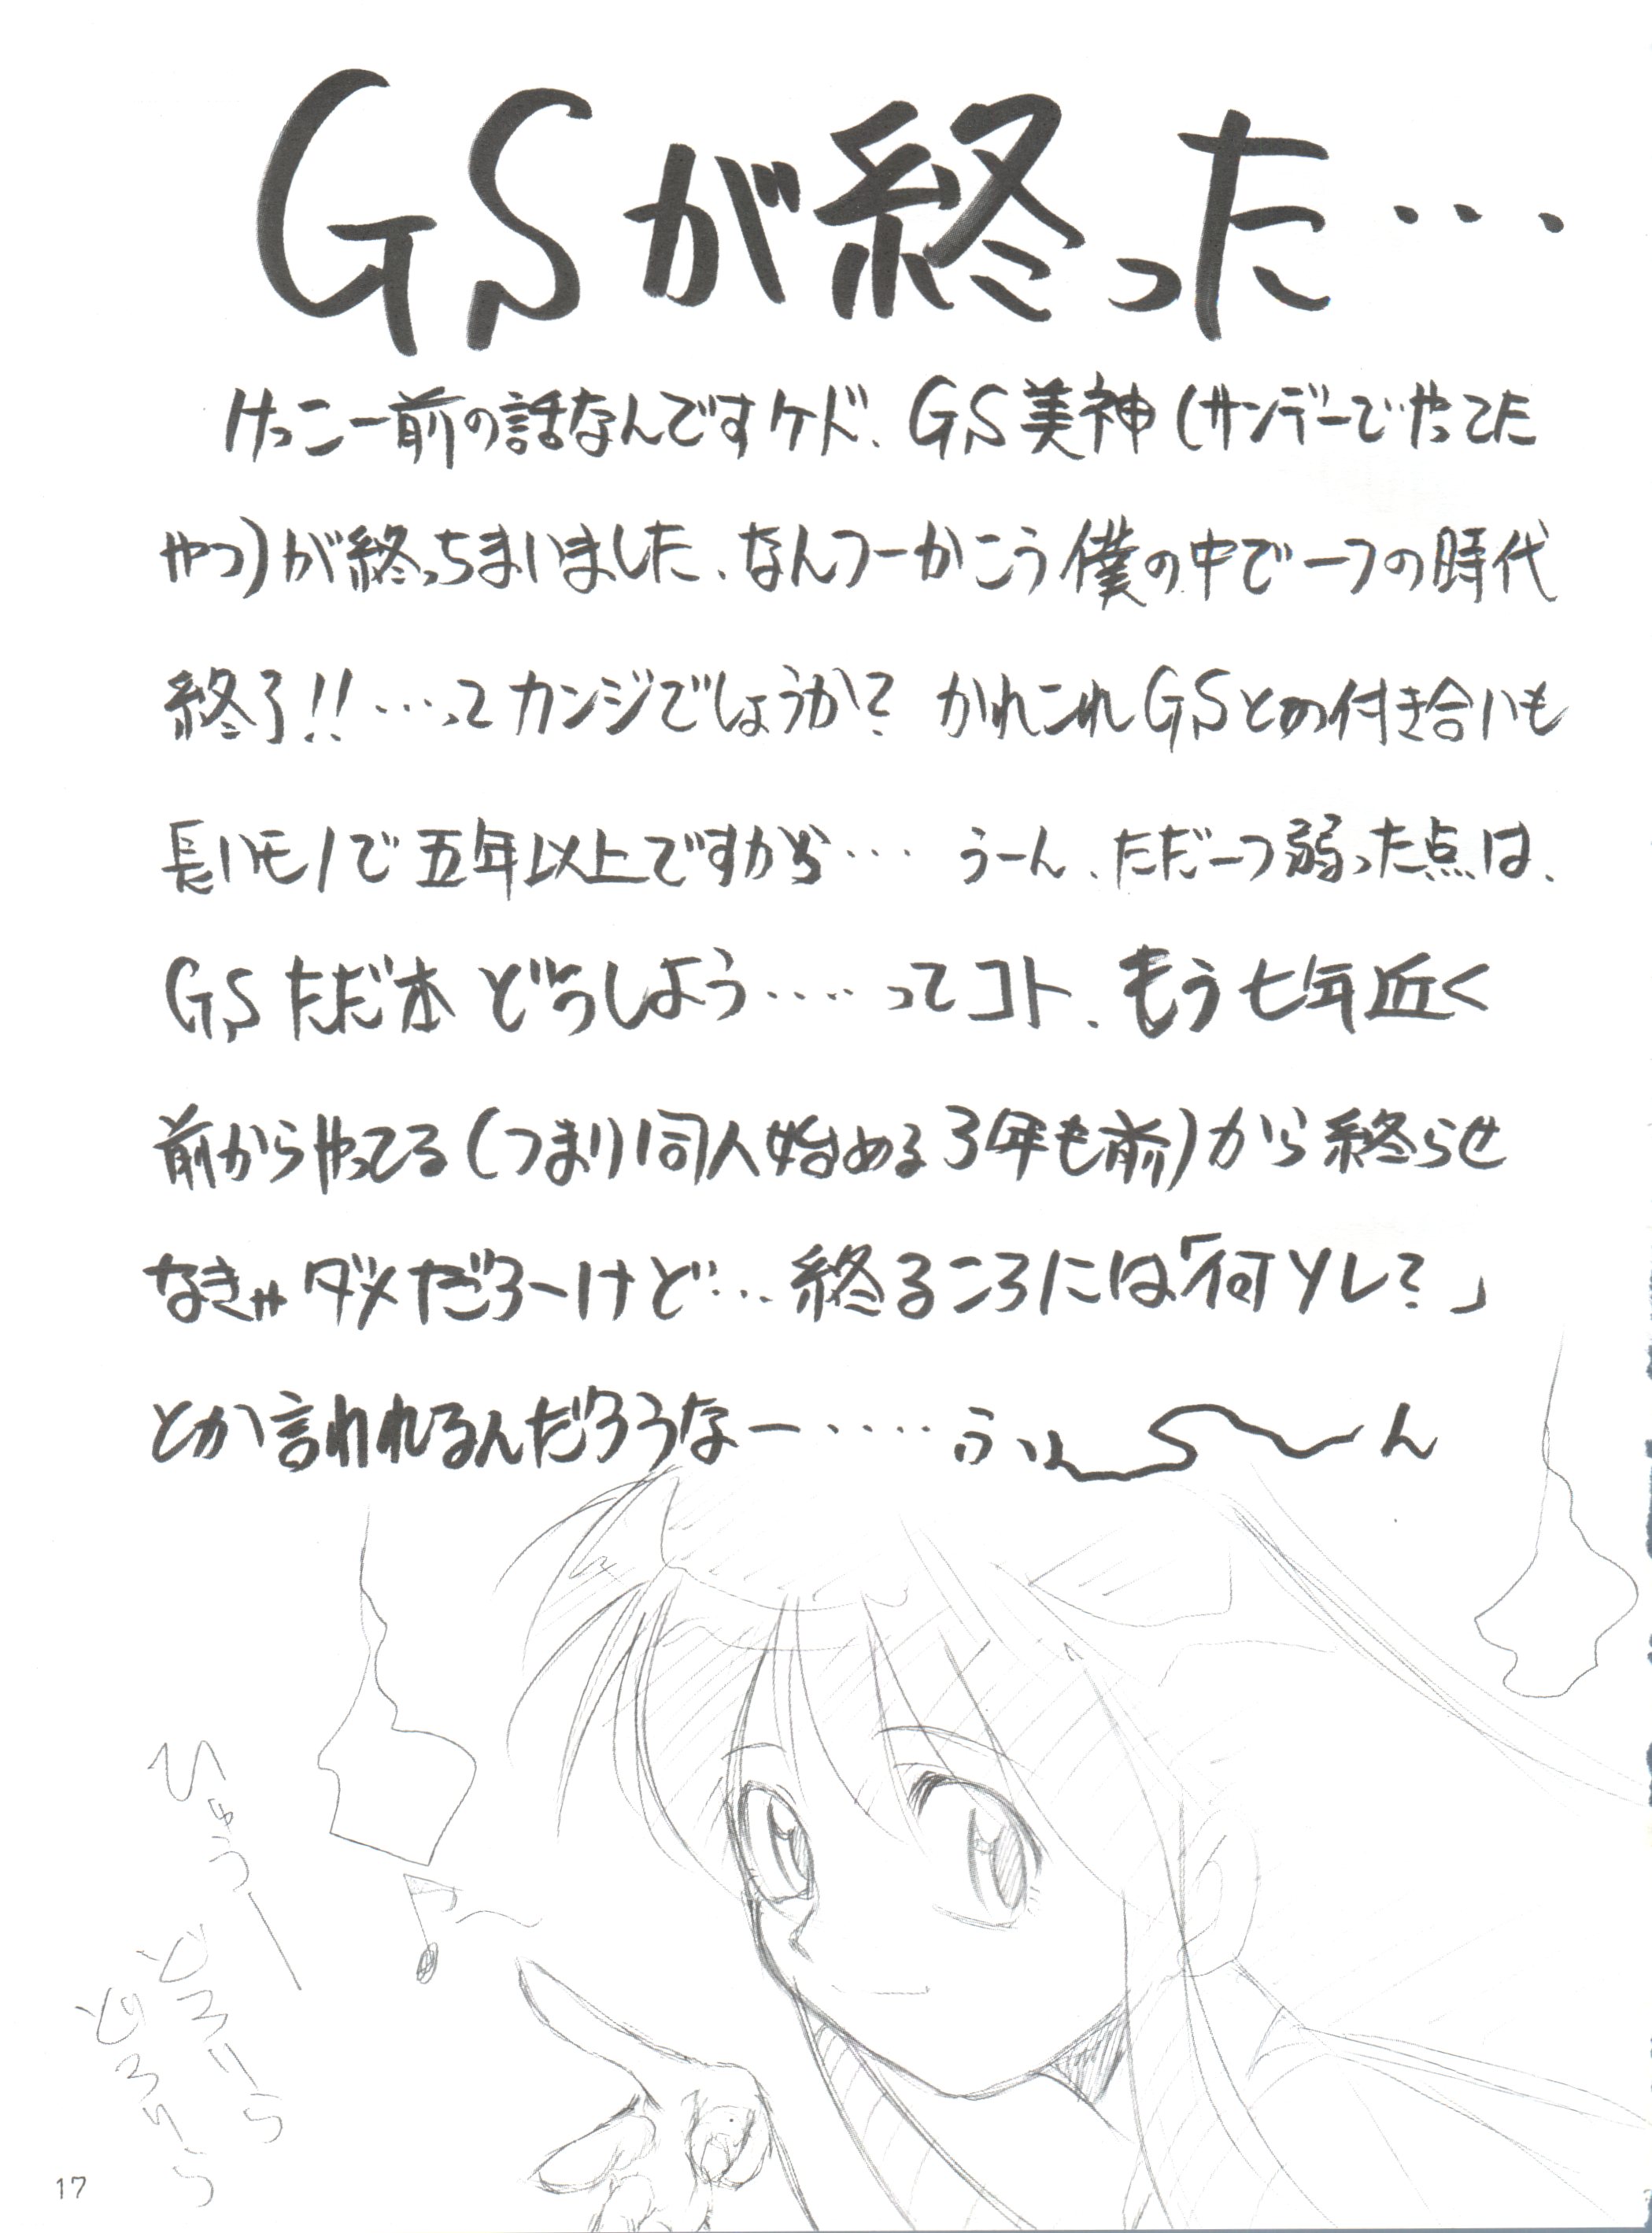 GSが終った…
けっこー前の話なんですケド、GS美神(サンデーでやってた
やつ)が終っちまいました、なんつーかこう僕の中で一つの時代
終了!!…ってカンジでしょうか? かれこれGSとの付き合いも
長いモノで五年以上ですから… うーん、ただ一つ弱った点は、
GSただ本どうしよう……ってコト、もう七年近く
前からやってる(つまり同人始める3年も前)から終らせ
なきゃダメだろーけど…終るころには「何ソレ?」
とか言われるんだろうなー…… ふぃ〜ん
ひゅうー
どろりろ
どろりろ
17